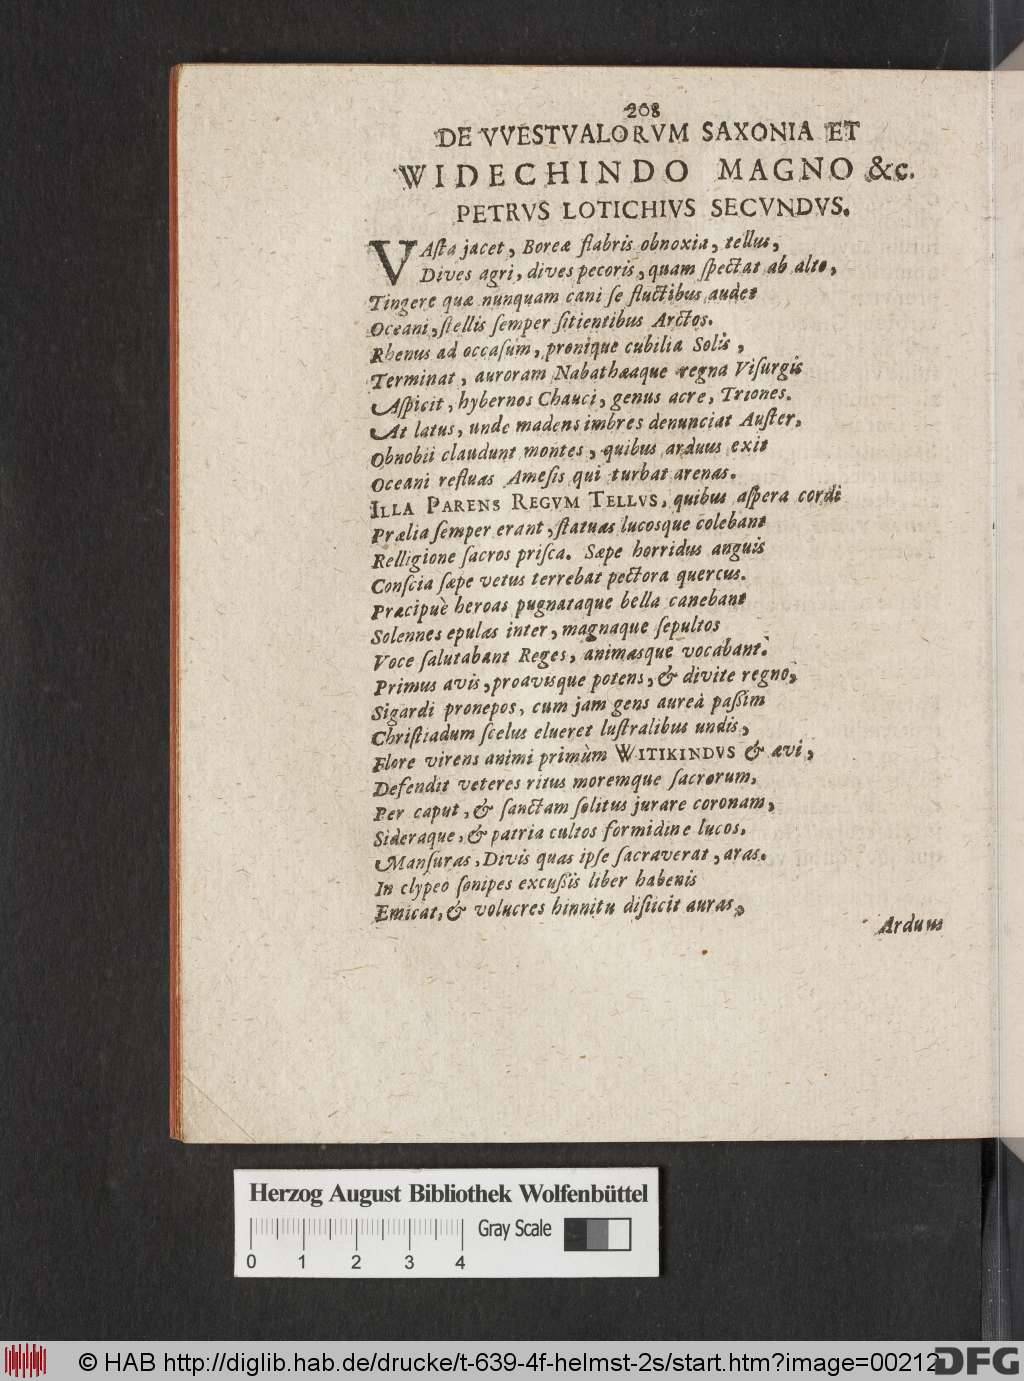 208
DE VVESTVALORVM SAXONIA ET
WIDECHINDO MAGNO &c.
PETRVS LOTICHIVS SECVNDVS.
VAſta jacet, Boreæ flabris obnoxia, tellus,
Dives agri, dives pecoris, quam ſpectat ab alto,
Tingere quæ nunquam cani ſe fluctibus audet
Oceani, ſtellis ſemper ſitientibus Arctos.
Rhenus ad occaſum, pronique cubilia Solis,
Terminat, auroram Nabathæaque regna Viſurgis
Aſpicit, hybernos Chauci, genus acre, Triones.
At latus, unde madens imbres denunciat Auſter,
Obnobii claudunt montes, quibus arduus exit
Oceani refluas Ameſis qui turbat arenas.
ILLA PARENS REGVM TELLVS, quibus aſpera cordi
Prælia ſemper erant, ſtatuas lucosque colebant
Relligione ſacros priſca. Sæpe horridus anguis
Conſcia ſæpe vetus terrebat pectora quercus.
Præcipuè heroas pugnataque bella canebant
Solennes epulas inter, magnaque ſepultos
Voce ſalutabant Reges, animasque vocabant.
Primus avis, proavisque potens, & divite regno,
Sigardi pronepos, cum jam gens aureà paſſim
Chriſtiadum ſcelus elueret luſtralibus undis,
Flore virens animi primùm WITIKINDVS & ævi,
Defendit veteres ritus moremque ſacrorum,
Per caput, & ſanctam ſolitus jurare coronam,
Sideraque, & patria cultos formidine lucos,
Manſuras, Divis quas ipſe ſacraverat, aras.
In clypeo ſonipes excuſſis liber habenis
Emicat, & volucres hinnitu disiicit auras,
Arduus
Herzog August Bibliothek Wolfenbüttel
Gray Scale
0 1 2 3 4
© HAB http://diglib.hab.de/drucke/t-639-4f-helmst-2s/start.htm?image=00212
DFG